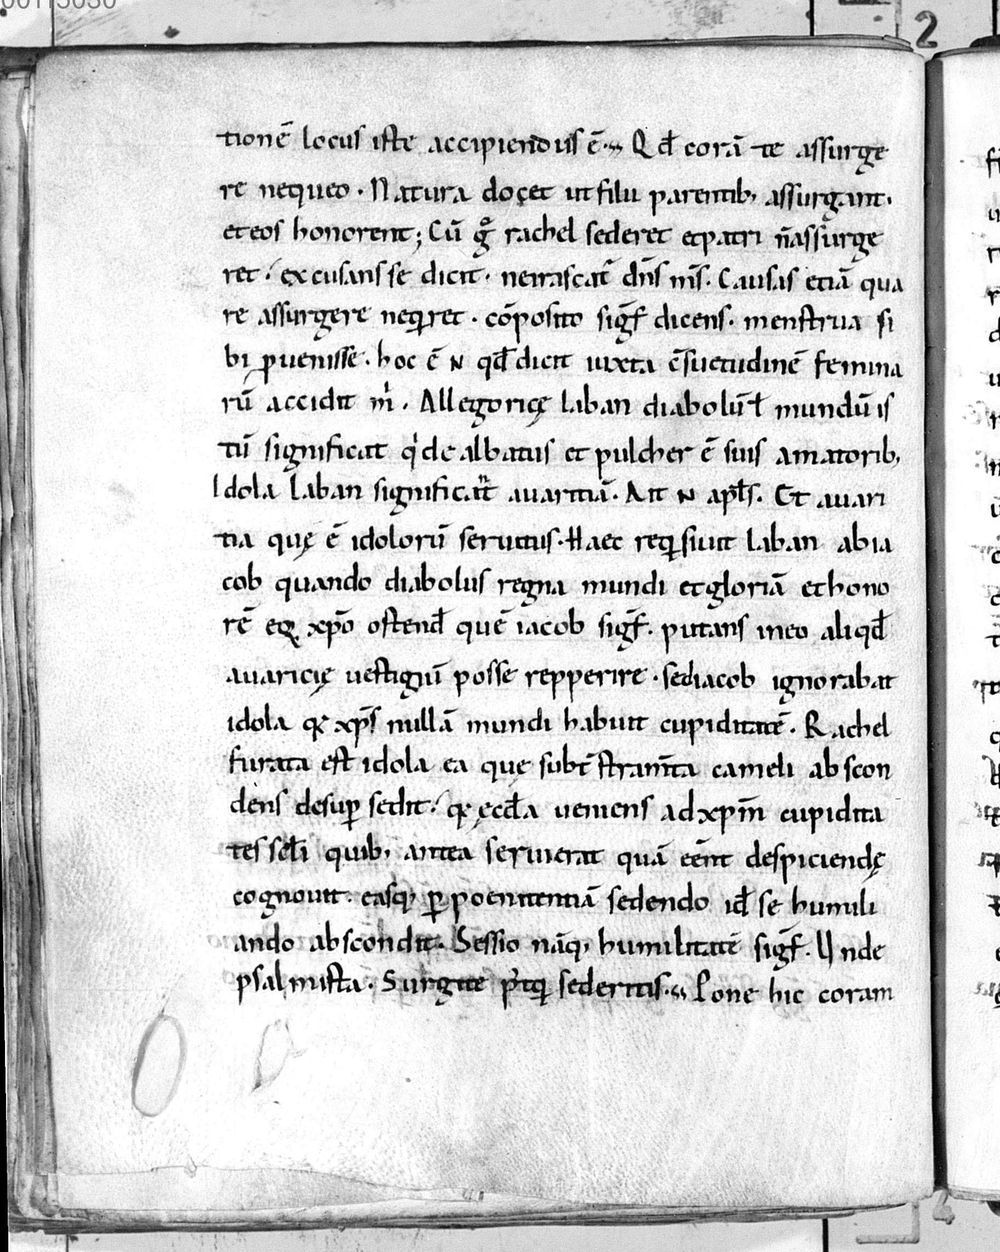 tionē locus iste accipiendus ē. Qđ corā te assurge
re nequeo. Natura docet ut filii parentib; assurgant.
et eos honorent; Cū gͦ rachel sederet et patri n̄ assurge
ret. excusans se dicit. ne irascat᷑ dn̄s m̄s. Causas etiā qua
re assurgere neqͥret. cōposito sigf̄ dicens. menstrua si
bi ꝑuenisse. hoc ē ɴ qđ dicit iuxta c̄suetudinē femina
rū accidit mͥ. Allegoricę laban diabolū ł mundū is
tū significat qͥ dealbatus et pulcher ē suis amatorib;
Idola laban significāt auaritiā. Ait ɴ apl̄s. Et auari
tia quę ē idolorū seruitus. Haec reqͥsiuit laban ab ia
cob quando diabolus regna mundi et gloriā et hono
rē eiꝰ xp̄o ostenđ quē iacob sigf̄. putans in eo aliqđ
auaricię uestigiū posse repperire. sed iacob ignorabat
idola qꝛ xp̄s nullā mundi habuit cupiditatē. Rachel
furata est idola ea que subt̄ stram̄ta cameli abscon
dens desuꝑ sedit. qꝛ ęccl̄a ueniens ad xp̄m cupidita
tes scl̄i quib; antea seruierat quā eēnt despiciendę
cognouit. easq; ꝑ poenitentiā sedendo iđ se humili
ando abscondit. Sessio nāq; humilitatē sigf̄. Unde
psalmista. Surgite p̾tq̄ sederitis. Pone hic coram